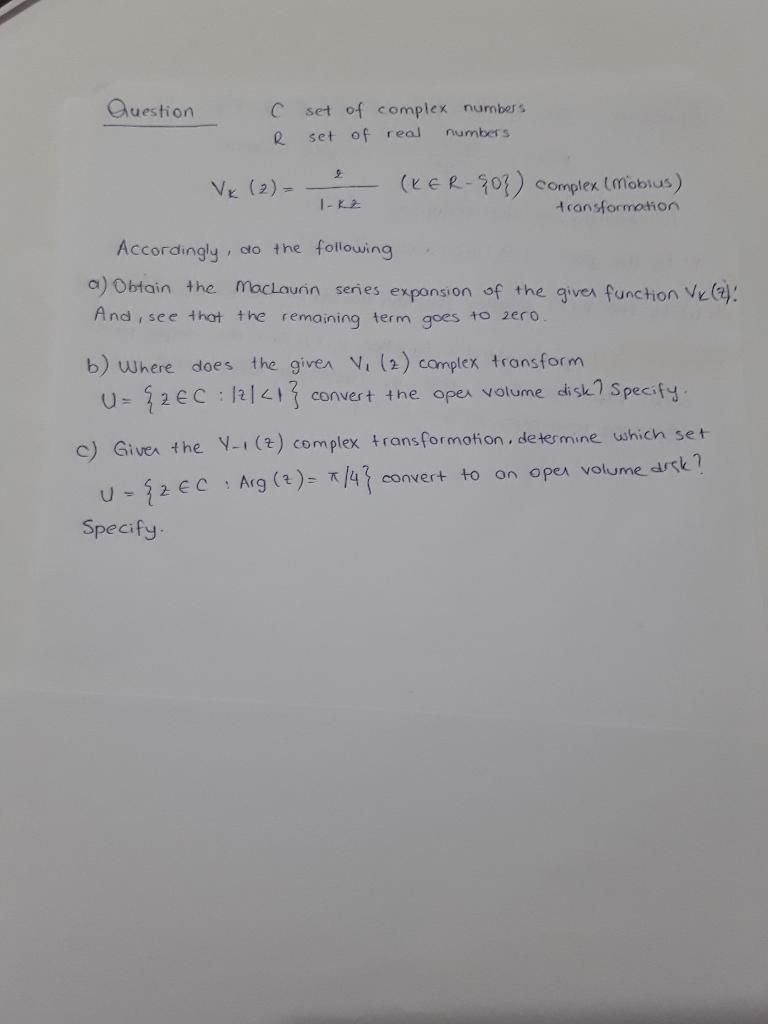 Question C set of complex numbers
R set of real numbers
VK (z) = z / 1-Kz (K ∈ R-{0}) complex (Möbius)
transformation
Accordingly, do the following
a) Obtain the MacLaurin series expansion of the given function VK(z):
And, see that the remaining term goes to zero.
b) Where does the given V1 (z) complex transform
U = {z ∈ C : |z| < 1} convert the open volume disk? Specify.
c) Given the V-1 (z) complex transformation, determine which set
U = {z ∈ C : Arg (z) = π/4} convert to an open volume disk?
Specify.